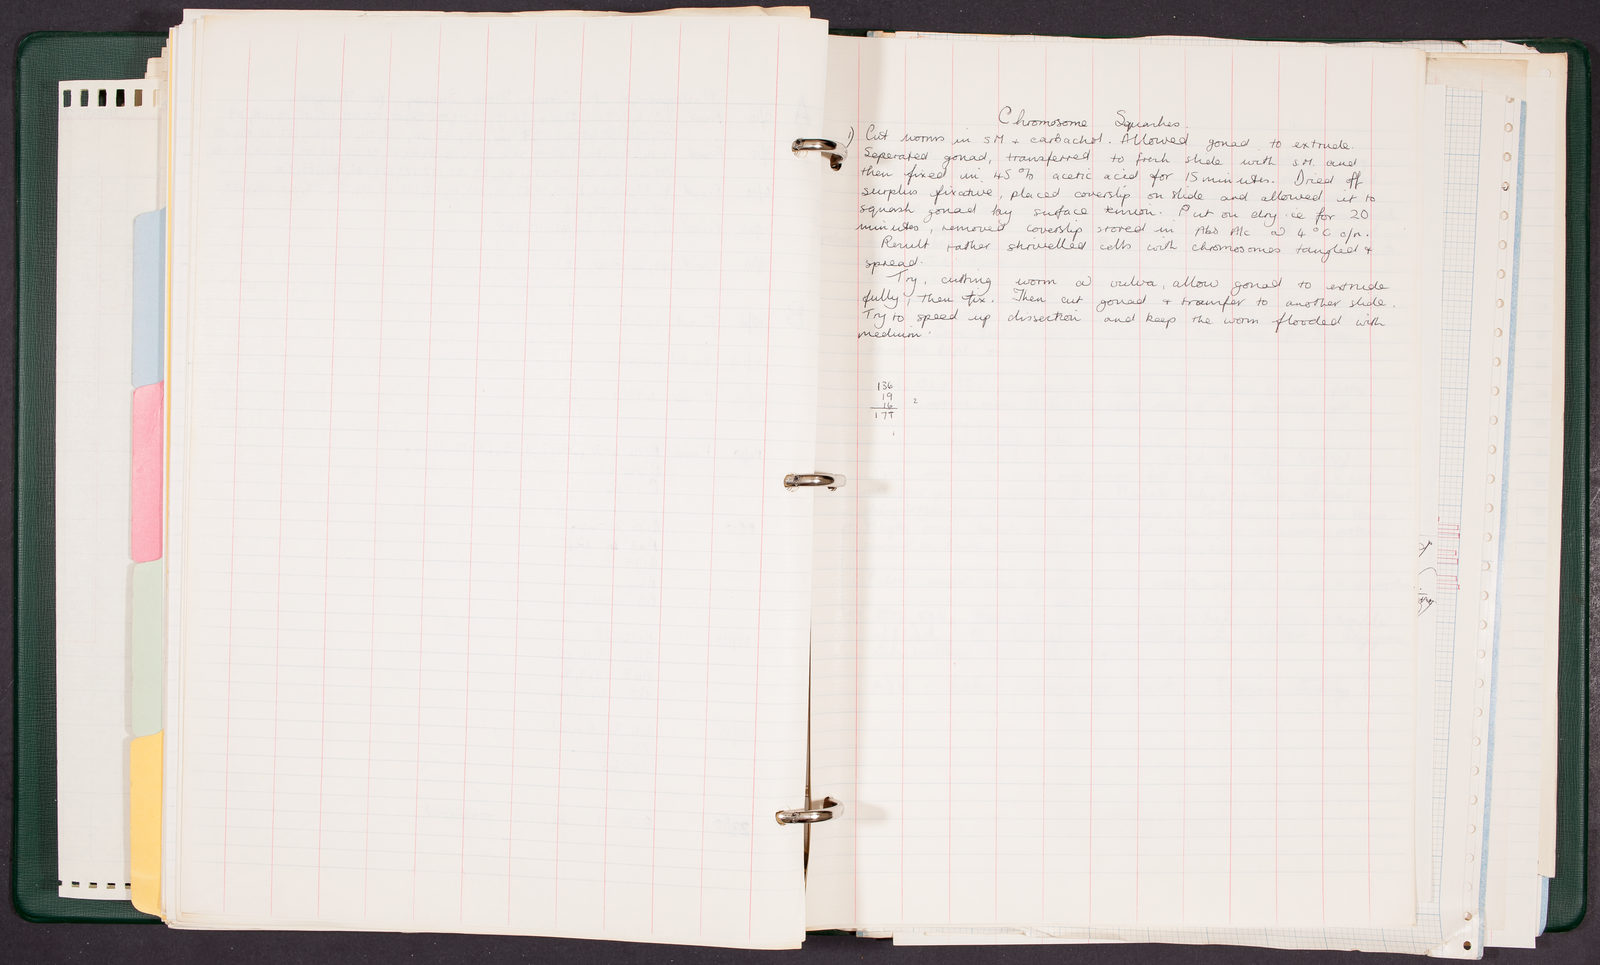 Chromosome Squashes.
1) Cut worms in SM + carbachol. Allowed gonad to extrude.
Seperated gonad, transferred to fresh slide with SM and
then fixed in 45% acetic acid for 15 minutes. Dried off
surplus fixative, placed coverslip on slide and allowed it to
squash gonad by surface tension. Put on dry ice for 20
minutes, removed coverslip stored in Abs Alc @ 4°C o/n.
Result rather shrivelled cells with chromosomes tangled +
spread.
Try, cutting worm @ vulva, allow gonad to extrude
fully, then fix. Then cut gonad + transfer to another slide.
Try to speed up dissection and keep the worm flooded with
medium.
136
19
16
2